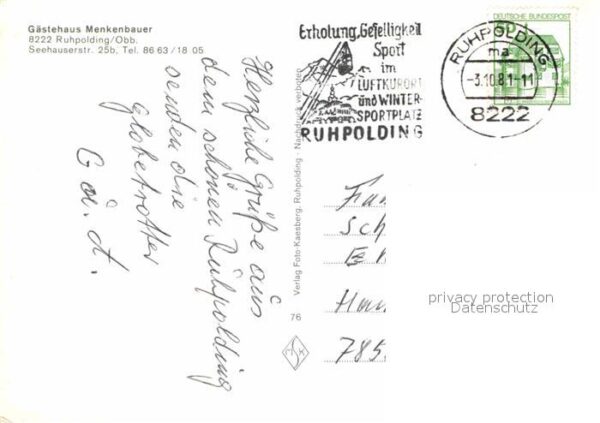 Gästehaus Menkenbauer
8222 Ruhpolding/Obb.
Seehauserstr. 25b, Tel. 8663/18 05
Herzliche Grüße aus
dem schönen Ruhpolding
senden die
Globetrotter
G. u. A.
Verlag Foto-Kaesberg, Ruhpolding - Nachdruck verboten
76
Erholung, Geselligkeit
Sport
im
LUFTKURORT
und WINTER-
SPORTPLATZ
RUHPOLDING
RUHPOLDING
ma
-3.10.81-11
8222
DEUTSCHE BUNDESPOST
Fam
Sch
Hau
785
privacy protection
Datenschutz